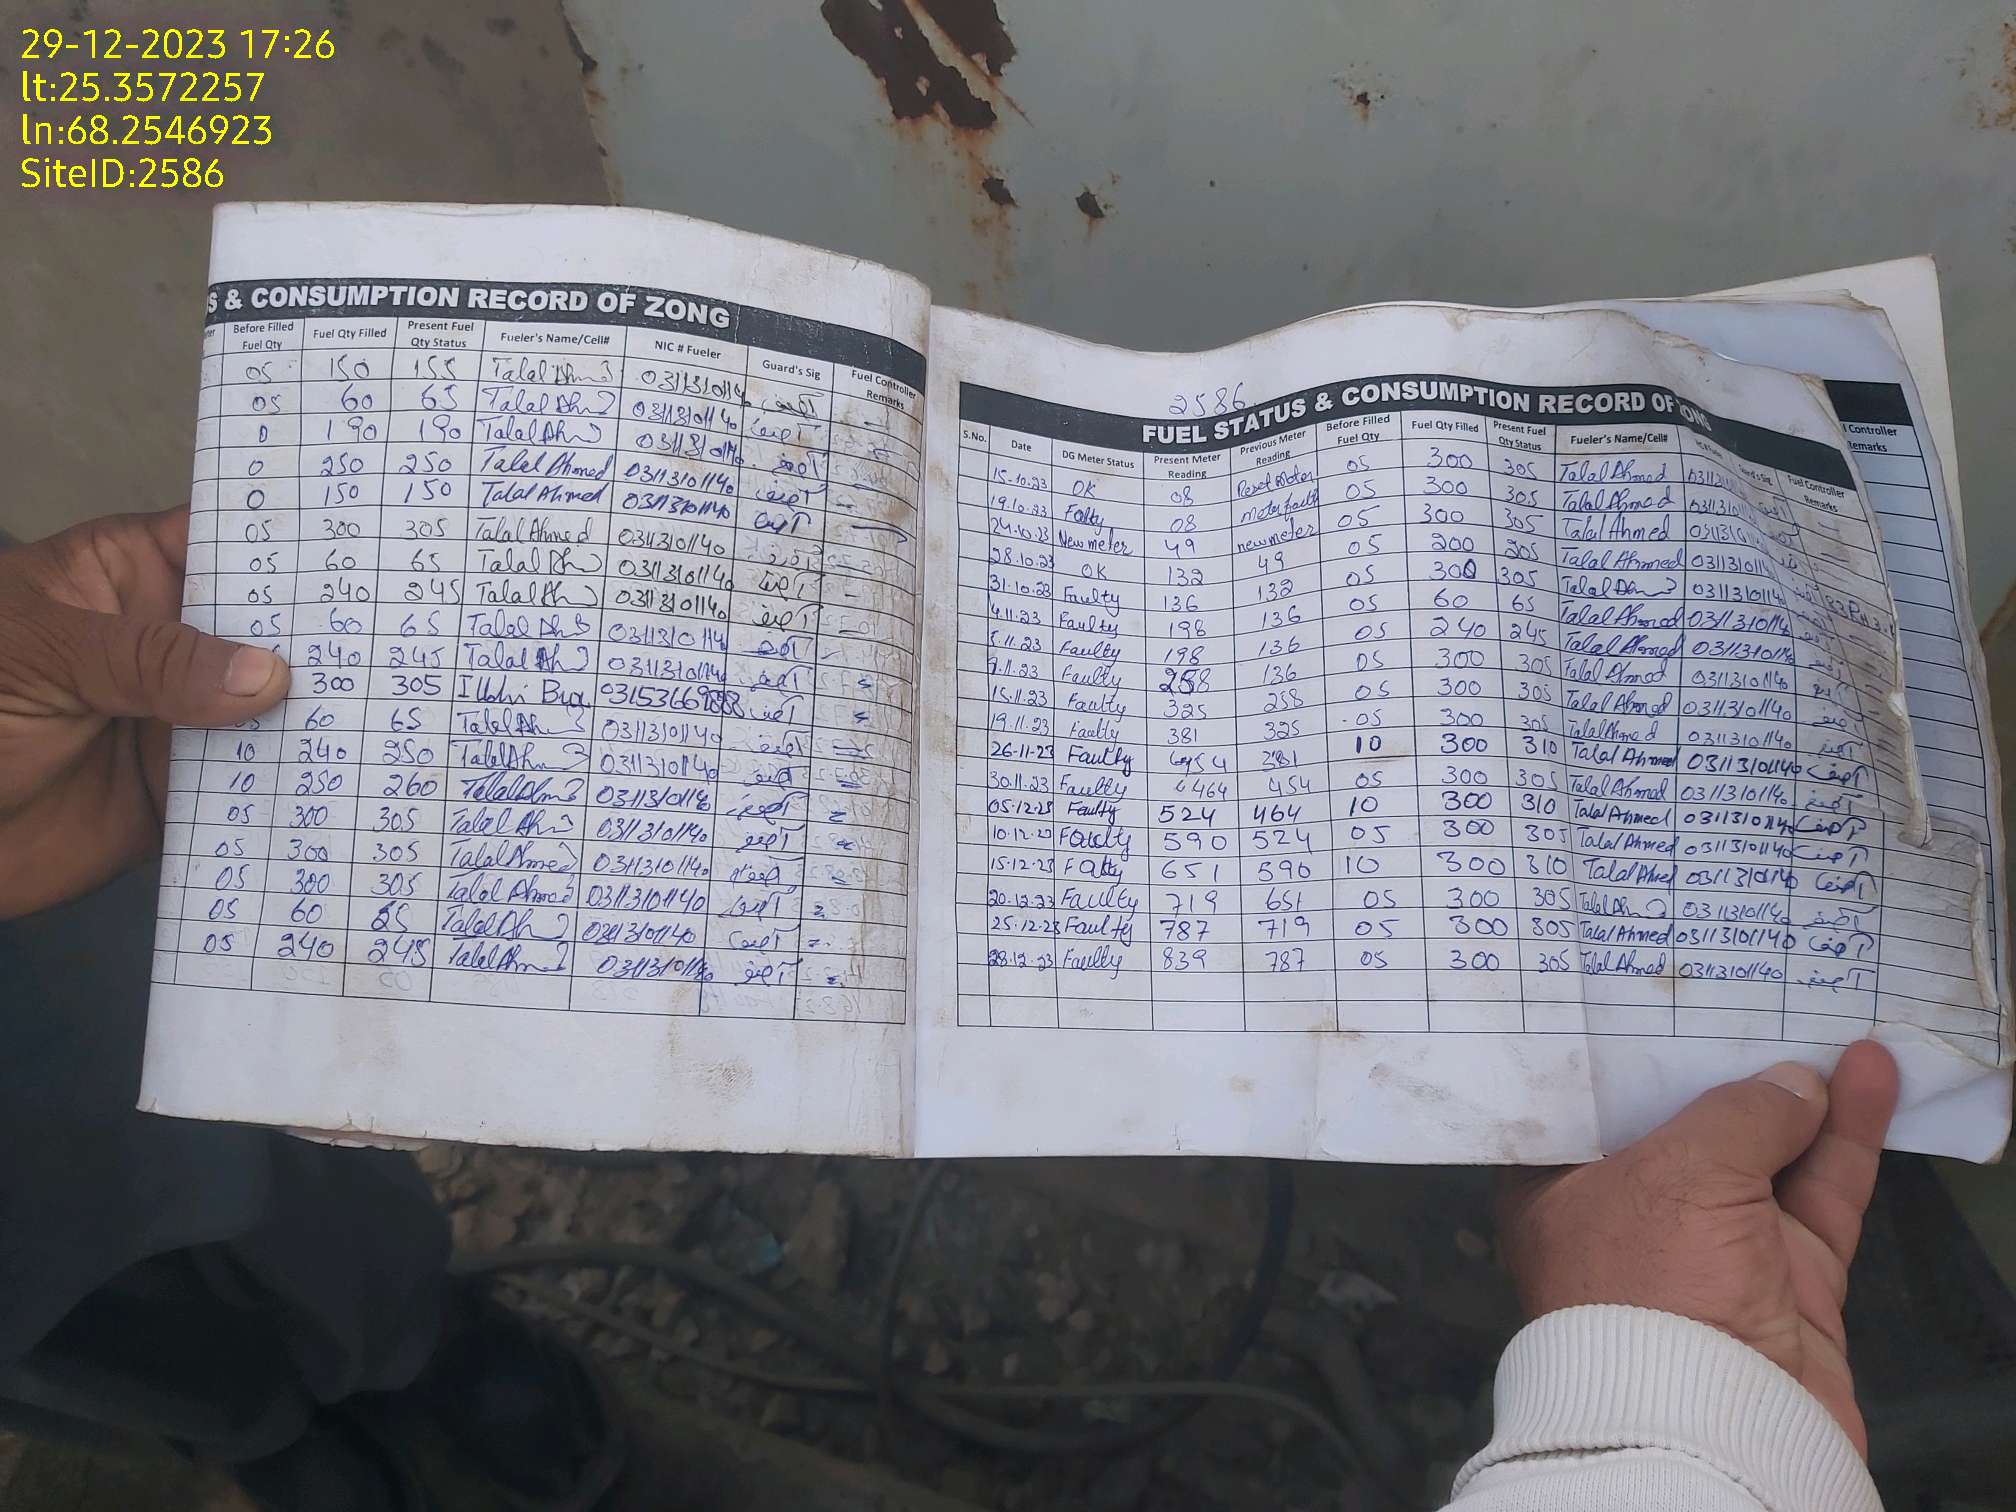 29-12-2023 17:26
lt:25.3572257
ln:68.2546923
SiteID:2586
S & CONSUMPTION RECORD OF ZONG
Before Filled Fuel Qty Fuel Qty Filled Present Fuel Qty Status Fueler's Name/Cell# NIC # Fueler Guard's Sig Fuel Controller Remarks
05 150 155 Talal Ahm 03113101140
05 60 65 Talal Ahm 03113101140
0 190 190 Talal Ahm 03113101140
0 250 250 Talal Ahmed 03113101140
0 150 150 Talal Ahmed 03113101140
05 300 305 Talal Ahmed 03113101140
05 60 65 Talal Ah 03113101140
05 240 245 Talal Ah 03113101140
05 60 65 Talal Ah 03113101140
240 245 Talal Ah 03113101140
300 305
60 65 Talal Ahm 03113101140
10 240 250 Talal Ahm 03113101140
10 250 260 Talal Ahm 03113101140
05 300 305 Talal Ahm 03113101140
05 300 305 Talal Ahmed 03113101140
05 300 305 Talal Ahmed 03113101140
05 60 Talal Ahm 03113101140
05 240 245 Talal Ahm 03113101140
2586
FUEL STATUS & CONSUMPTION RECORD OF ZONG
S.No. Date DG Meter Status Present Meter Reading Previous Meter Reading Before Filled Fuel Qty Fuel Qty Filled Present Fuel Qty Status Fueler's Name/Cell# Fuel Controller Remarks
15.10.23 OK 08 Reset Meter 05 300 305 Talal Ahmed
19.10.23 Falty 08 meter fault 05 300 305 Talal Ahmed
24.10.23 New meter 49 new meter 05 300 305 Talal Ahmed
28.10.23 OK 132 49 05 200 205 Talal Ahmed 03113101140
31.10.23 Faulty 136 132 05 300 305 Talal Ahm 03113101140
4.11.23 Faulty 198 136 05 60 65 Talal Ahmed 03113101140
5.11.23 Faulty 198 136 05 240 245 Talal Ahmed 03113101140
9.11.23 Faulty 258 136 05 300 305 Talal Ahmed 03113101140
15.11.23 Faulty 325 258 05 300 305 Talal Ahmed 03113101140
19.11.23 Faulty 381 325 05 300 305 Talal Ahmed 03113101140
26-11-23 Faulty 10 300 310 Talal Ahmed 03113101140
30.11.23 Faulty 464 454 05 300 305 Talal Ahmed 03113101140
05.12.23 Faulty 524 464 10 300 310 Talal Ahmed 03113101140
10.12.23 Faulty 590 524 05 300 305 Talal Ahmed 03113101140
15.12.23 Falty 651 590 10 300 310 Talal Ahmed 03113101140
20.12.23 Faulty 719 651 05 300 305 Talal Ahm 03113101140
25.12.23 Faulty 787 719 05 300 305 Talal Ahmed 03113101140
28.12.23 Faulty 839 787 05 300 305 Talal Ahmed 03113101140
l Controller
Remarks